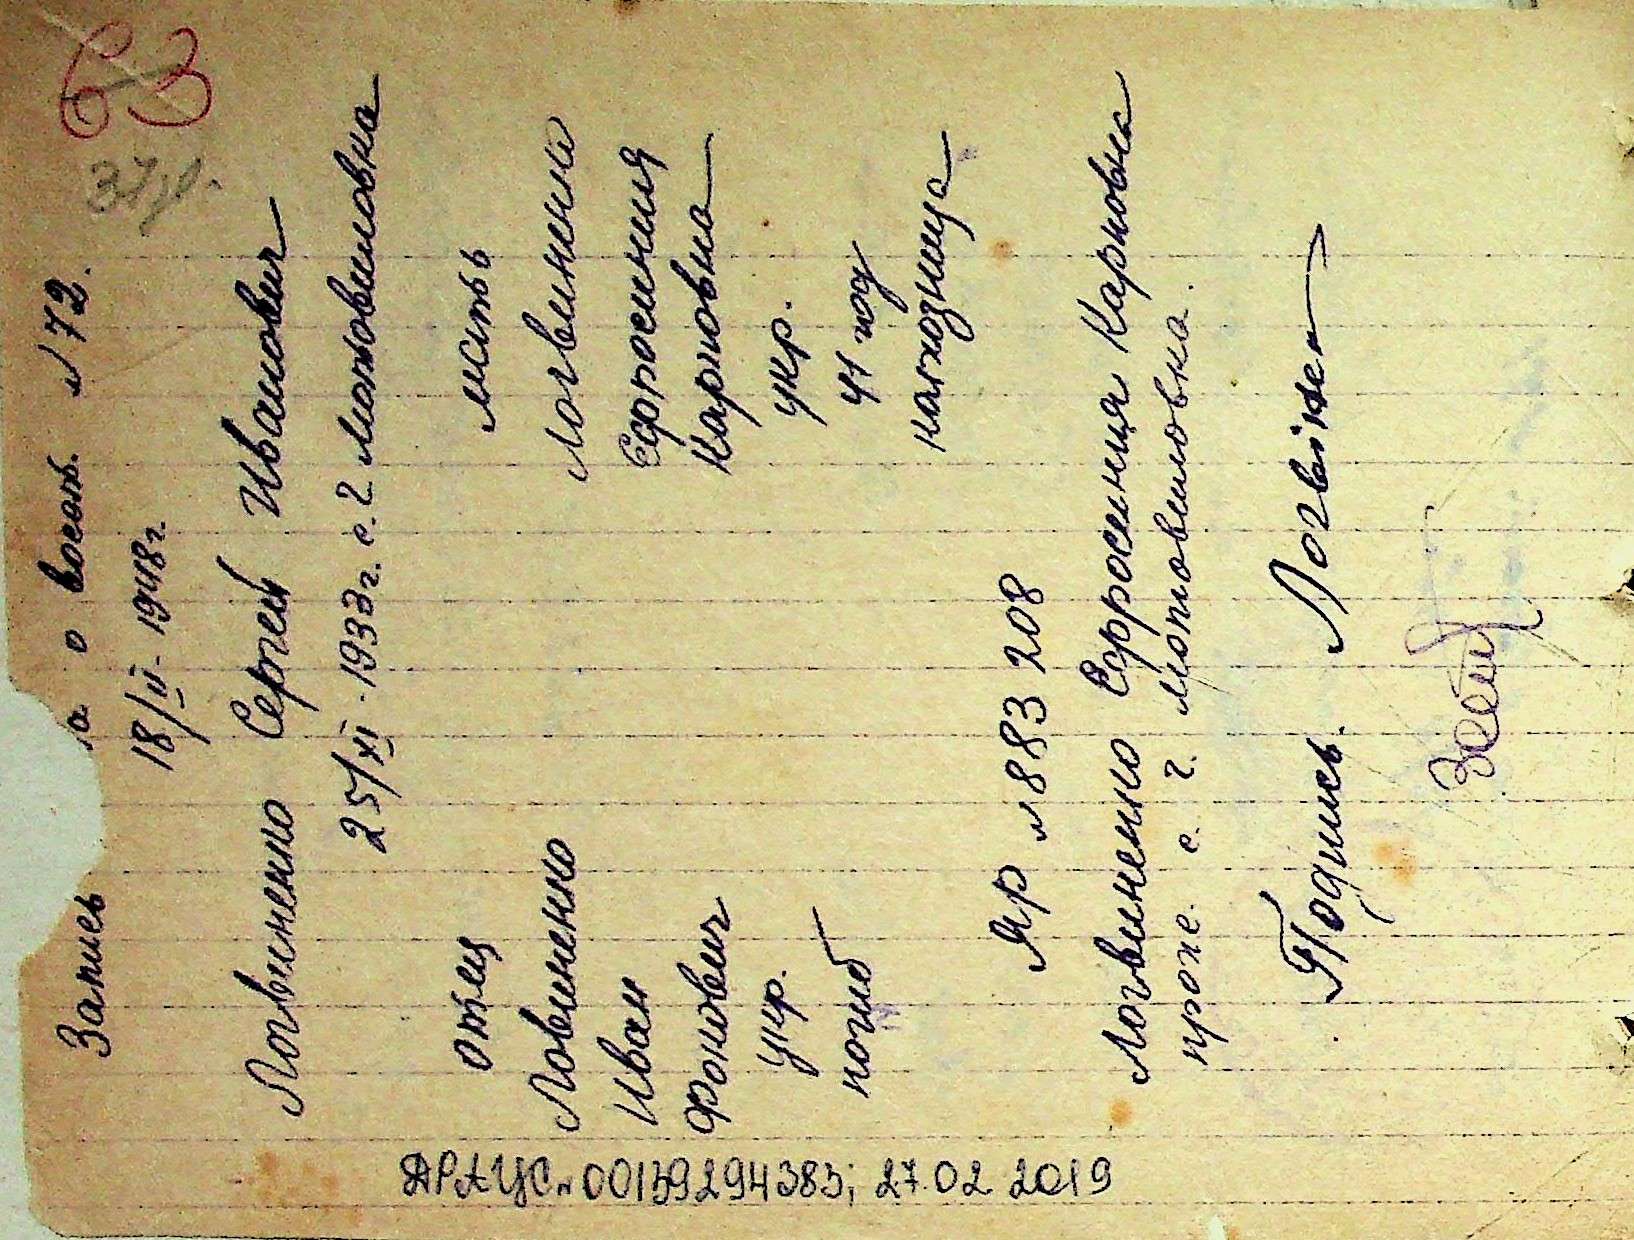 63
37 р.
Запись ла о восст. №72.
18/II-1948г.
Логвиненко Сергей Иванович
25/XI-1933г. с. 2 Мотовиловка
отец
Ловиненко
Иван
Фокович
укр.
погиб
мать
Логвиненко
Ефросиния
Карповна
укр.
41 год
колхозница
ЯР №883208
Логвиненко Ефросиния Карповна
прож. с. 2. Мотовиловка.
Подпись. Логвінен
ДРАЦС №00159294383; 27.02 2019